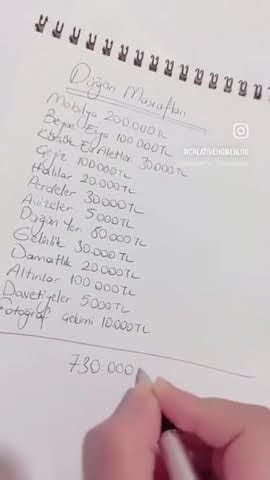 Düğün Masrafları
Mobilya 200.000TL
Beyaz Eşya 100.000TL
Küçük Ev Aletleri 30.000TL
Çeyiz 100.000TL
Halılar 20.000TL
Perdeler 30.000TL
Avizeler 5000TL
Düğün Yeri 80.000TL
Gelinlik 30.000TL
Damatlık 20.000TL
Altınlar 100.000TL
Davetiyeler 5000TL
Fotoğraf Çekimi 10.000TL
730.000
CREATIVEHOMEBLOG